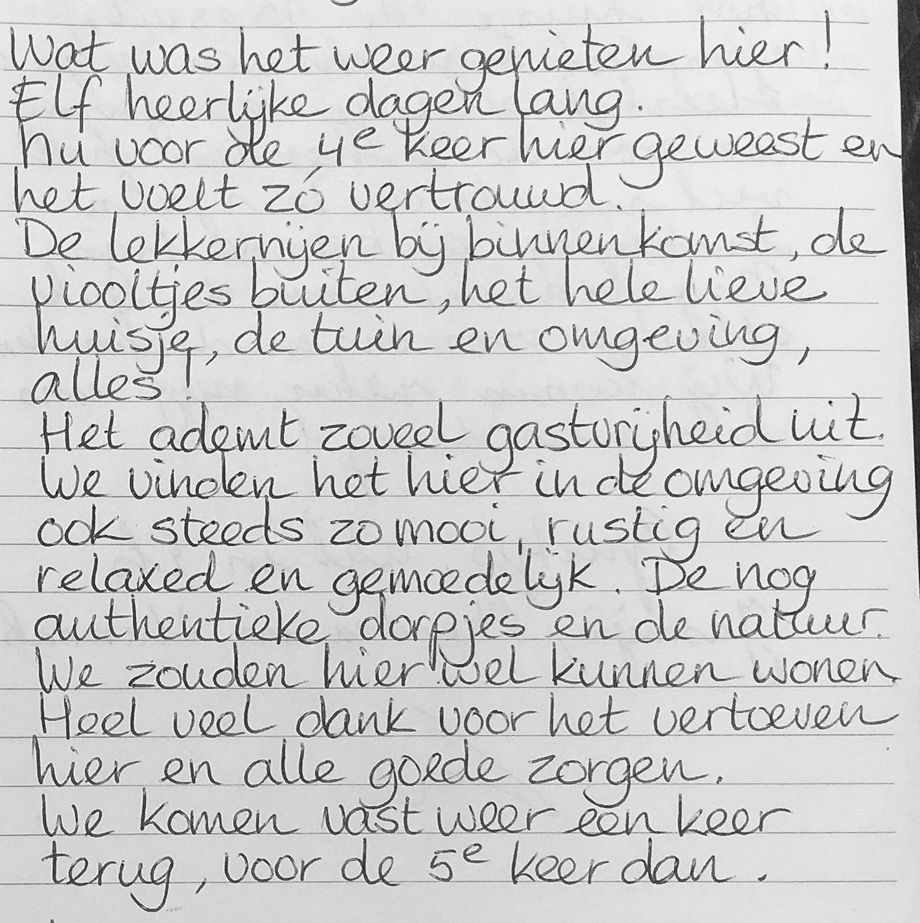 Wat was het weer genieten hier!
Elf heerlijke dagen lang.
Nu voor de 4e keer hier geweest en
het voelt zó vertrouwd.
De lekkernijen bij binnenkomst, de
viooltjes buiten, het hele lieve
huisje, de tuin en omgeving,
alles!
Het ademt zoveel gastvrijheid uit.
We vinden het hier in de omgeving
ook steeds zo mooi, rustig en
relaxed en gemoedelijk. De nog
authentieke dorpjes en de natuur.
We zouden hier wel kunnen wonen
Heel veel dank voor het vertoeven
hier en alle goede zorgen.
We komen vast weer een keer
terug, voor de 5e keer dan.